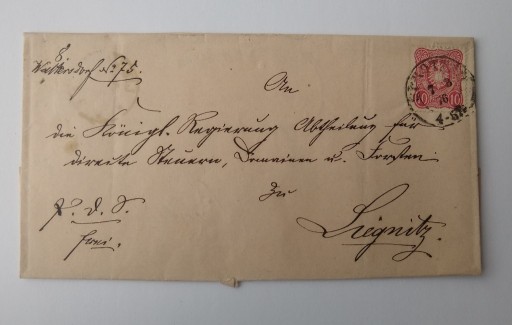 8
No 75.
An
die Königl. Regierung Abtheilung für
directe Steuern, Domainen u. Forsten
Zu
Liegnitz.
P. d. S.
frei.
10 10
7 3
76
4-5N